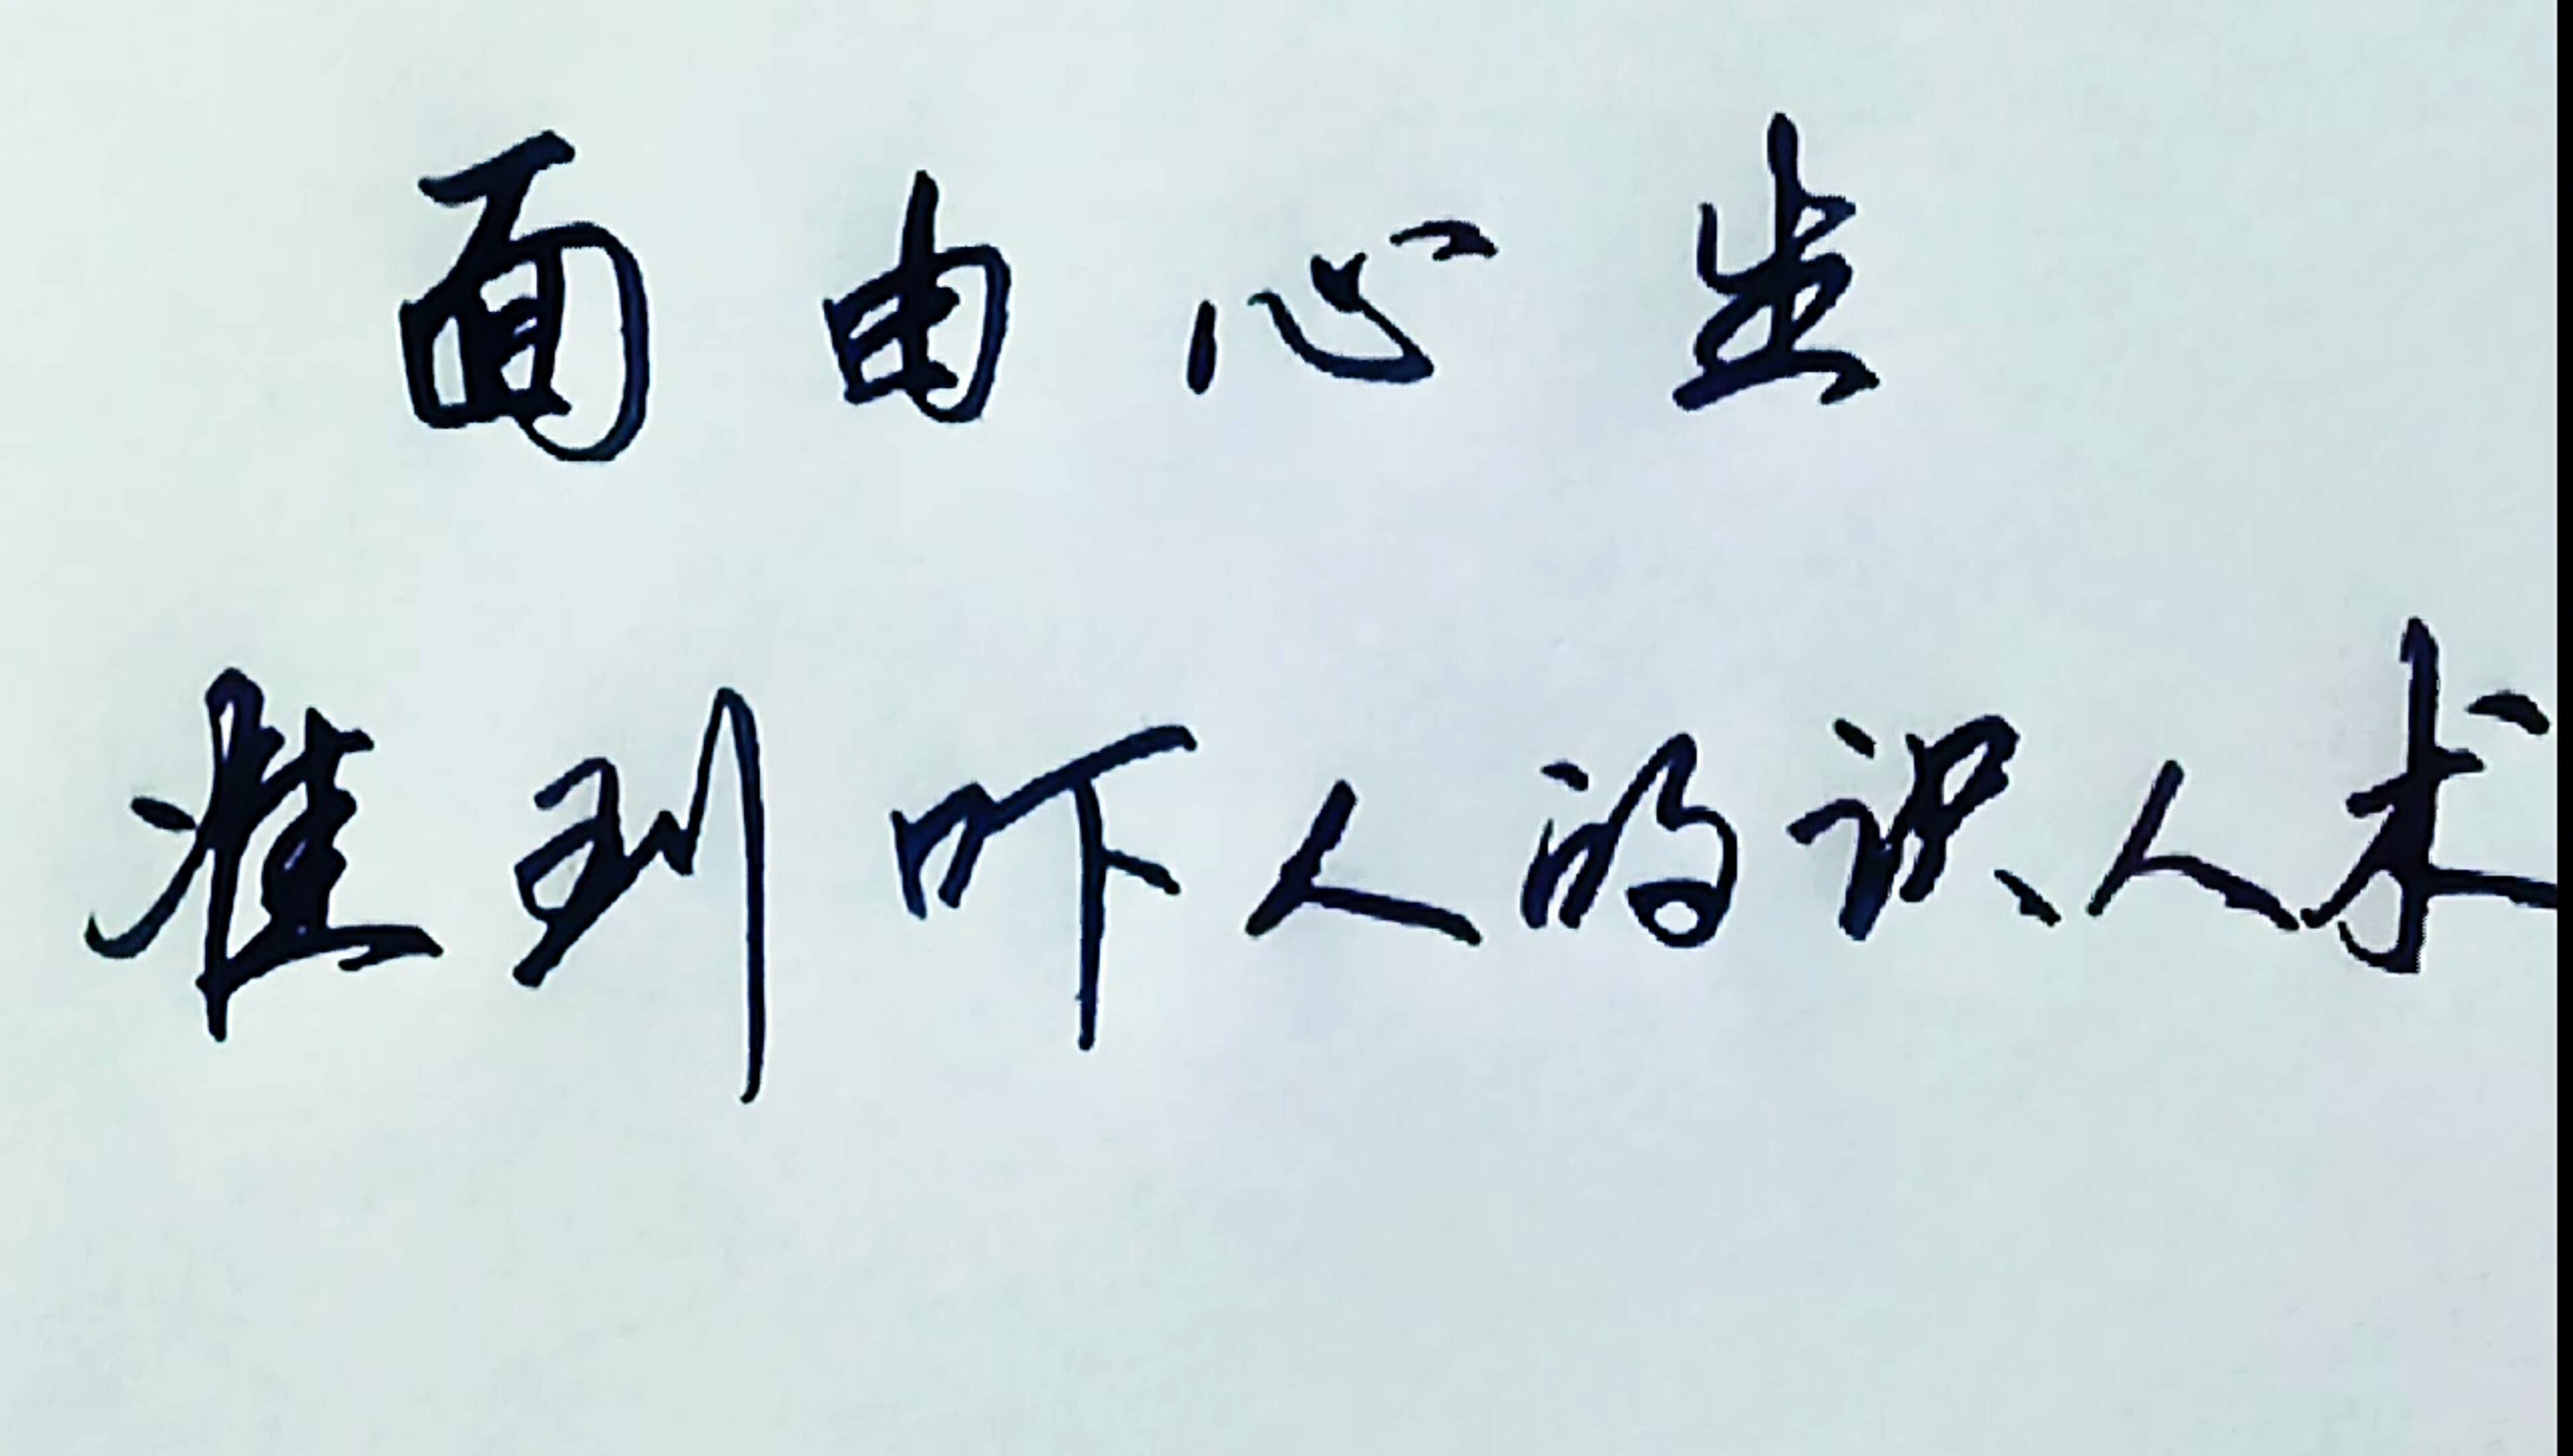 面由心生
准到吓人的识人术